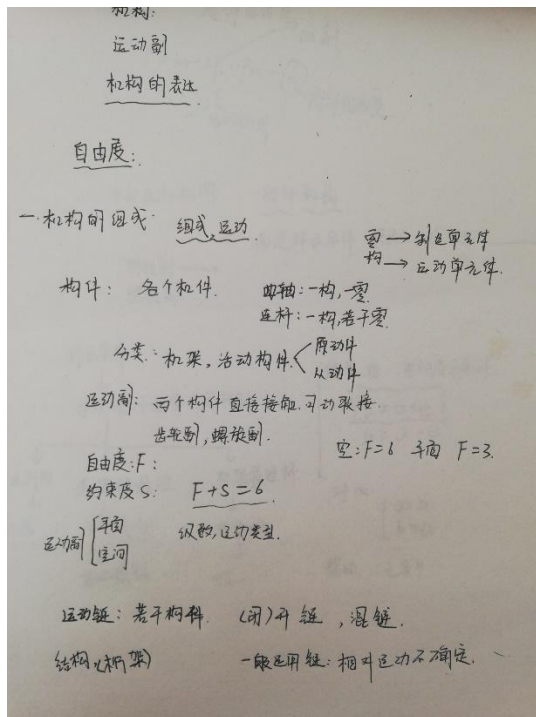 机构:
运动副
机构的表达
自由度:
一.机构的组成 组成,运动
零→制造单元体
构→运动单元体.
构件: 各个机件. 曲轴:一构,一零
连杆:一构,若干零
分类:机架,活动构件 原动件
从动件
运动副: 两个构件直接接触.可动联接.
齿轮副,螺旋副.
空:F=6 平面 F=3.
自由度:F:
约束度S: F+S=6
运动副 平面 级数,运动类型.
空间
运动链:若干构件. (闭)开链,混链.
结构,(桁架) 一般运用链:相对运动不确定.